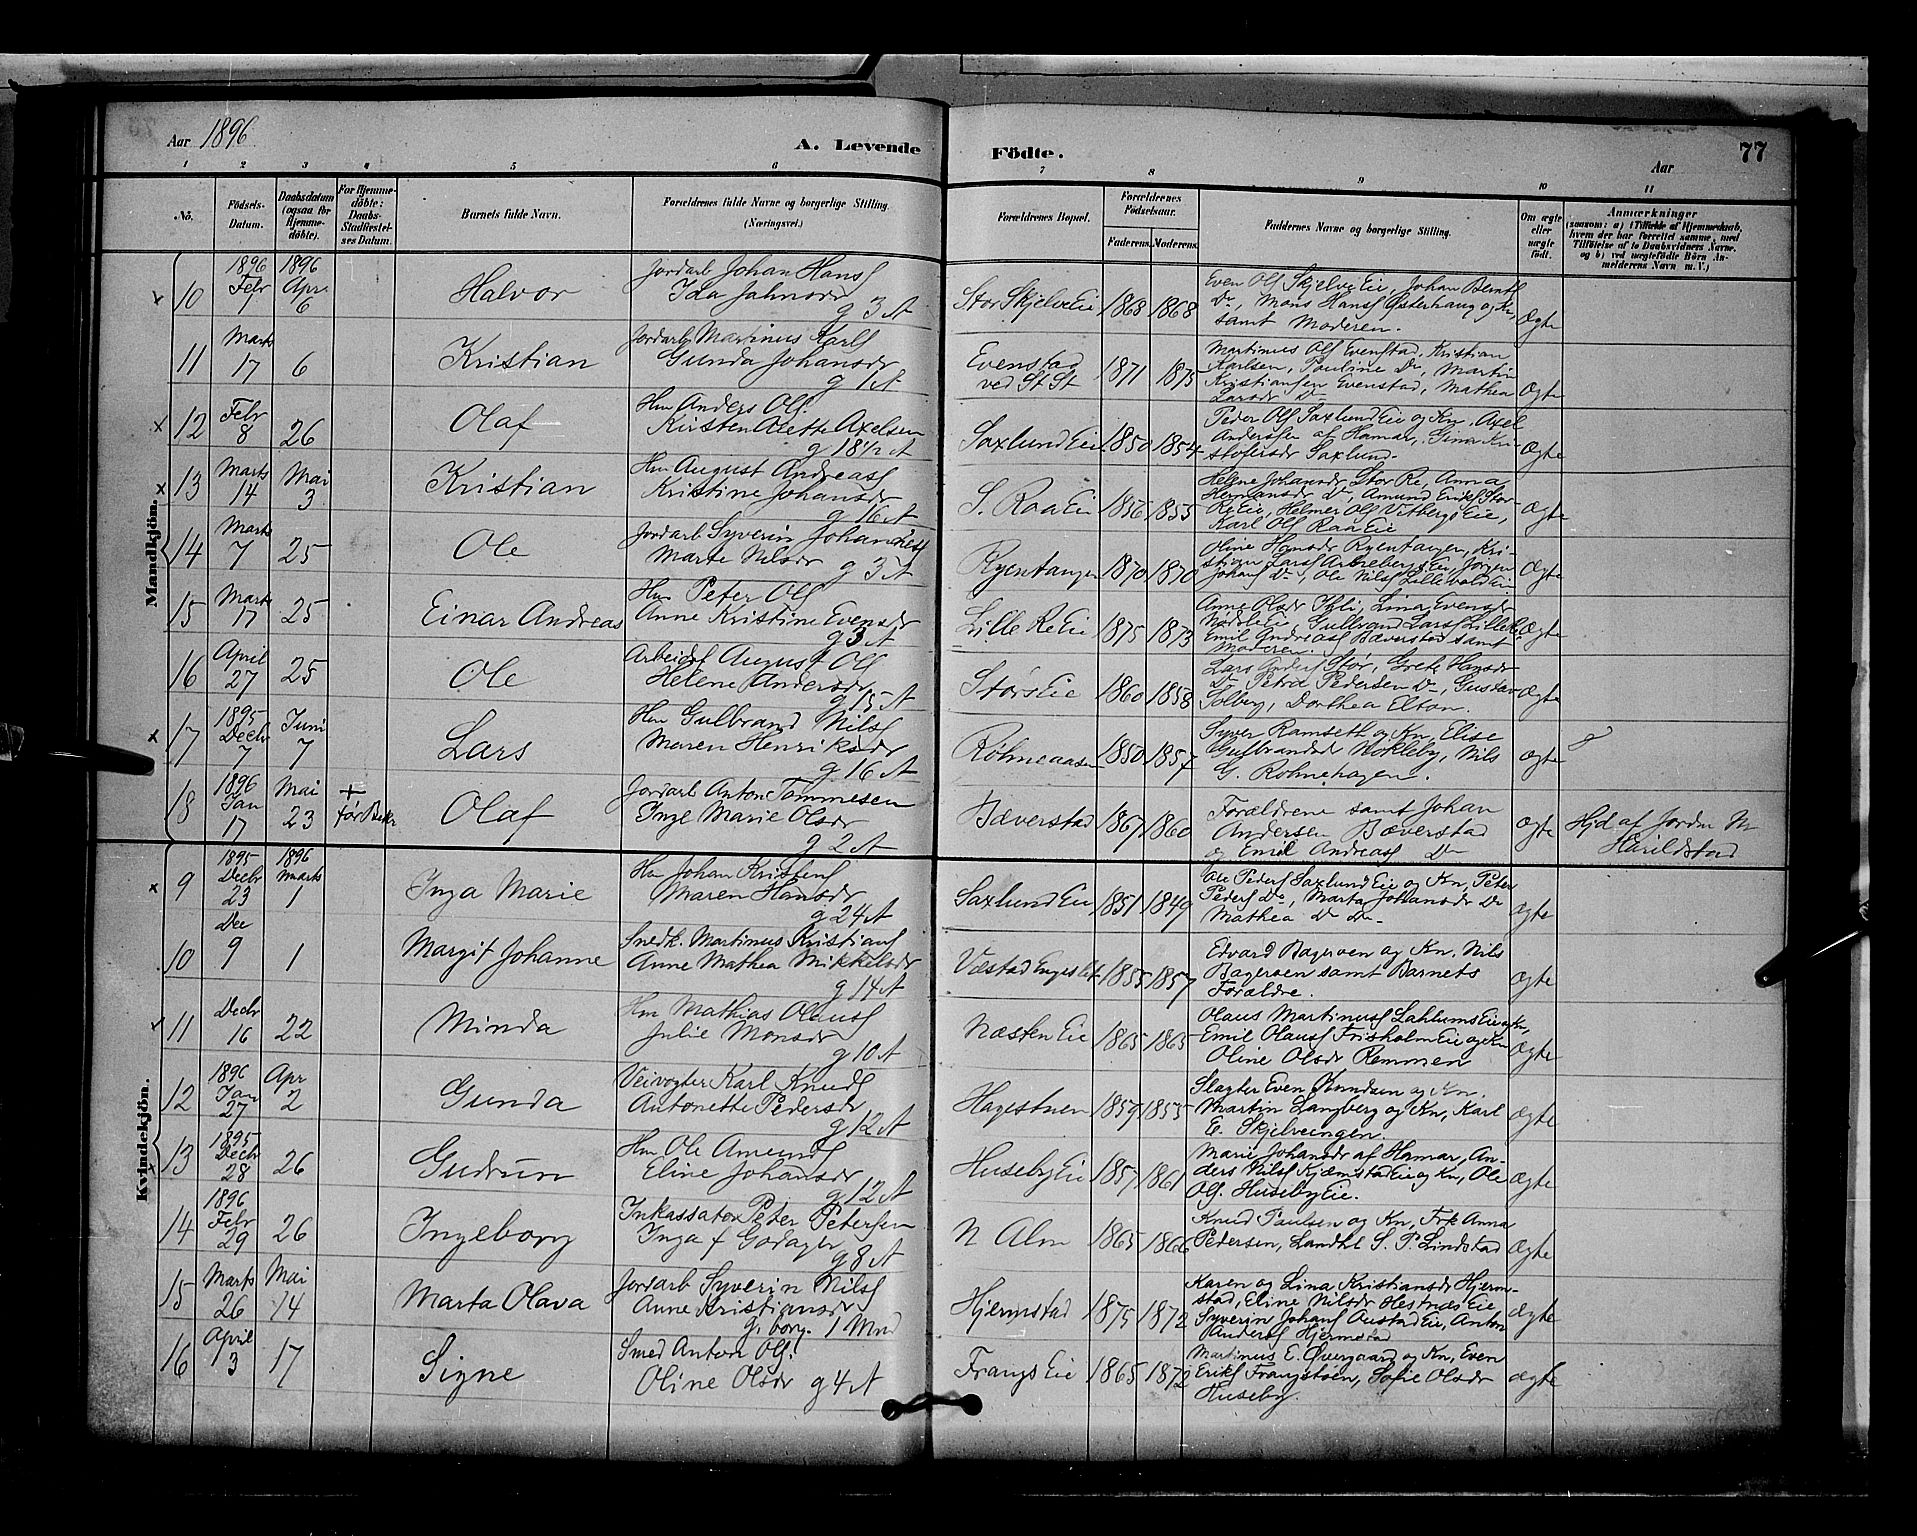 Aar 1896
A. Levende
Födte.
Aar
77
1 2 3 4 5 6 7 8 9 10 11
Nö.
Födsels-
Datum.
Daabsdatum
(ogsaa for
Hjemme-
döbte).
For Hjemme-
döbte:
Daabs-
Stadfæstel-
ses Datum.
Barnets fulde Navn.
Forældrenes fulde Navne og borgerlige Stilling.
(Næringsvei.)
Forældrenes Bopæl.
Forældrenes
Födselsaar.
Faderens.
Moderens.
Faddernes Navne og borgerlige Stilling.
Om ægte
eller
uægte
födt.
Anmærkninger
(saasom: a) i Tilfælde af Hjemmedaab,
hvem der har forrettet samme, med
Tilföielse af to Daabsvidners Navne.
og b) ved uægtefödte Börn An-
melderens Navn m. V.)
Mandkjön.
10 1896 Febr 7 1896 Apr. 6 Halvor
Jordarb Johan Hans
Ida Jahnsdr
g 3 A
Stor Skjelve Eie 1868 1868
Even Ols Skjelve Eie, Johan Bernts
Do, Mons Hans Østerhaug og Kn,
samt Moderen.
Ægte
11 Marts 17 6 Kristian
Jordarb Martinus Karls
Gunda Johansdr
g 1 A
Evenstad
ved St St
1871 1875
Martinus Ols Evenstad, Kristian
Karlsen, Pauline Do, Martin
Kristiansen Evenstad, Mathea
Larsdr Do
Ægte
12 Febr 8 26 Olaf
Hm Anders Ols.
Kirsten Alette Axelsen
g 18 1/2 A
Saxlund Eie 1850 1854
Peder Ols Saxlund Eie og Kn, Axel
Andersen af Hamar, Gina Kri-
stofersdr Saxlund.
Ægte
13 Marts 14 Mai 3 Kristian
Hm August Andreas
Kristine Johansdr
g 16 A
S. Raa Eie 1856 1855
Helene Johansdr Stor Re, Anna
Hermansdr Do, Amund Eriks Stor
Re Eie, Helmer Ols Vitbergs Eie,
Karl Ols Raa Eie
Ægte
14 Marts 7 25 Ole
Jordarb Syverin Johannes
Marte Nilsdr g 3 A
Ryentangen 1870 1870
Oline Hansdr Ryentangen, Kri-
stian Lars Eie, Jörgen
Johans Do, Ole Nils Lillevold Eie
Ægte
15 Marts 17 25 Einar Andreas
Hm Peter Ols
Anne Kristine Evensdr
g 3 A
Lille Re Eie 1875 1873
Anne Olsdr Skli, Lina Evensdr
Eie, Gulbrand Lars Lille Re
Emil Andreas Bæverstad samt
Moderen.
Ægte
16 April 27 25 Ole
Arbeider August Ols
Helene Andersdr
g 15 A
Størs Eie 1860 1858
Lars Anders Stør, Grete Hansdr
Do Petra Pedersen Do, Gustav
Solberg, Dorthea Elton.
Ægte
17 1895 Decbr 7 Juni 7 Lars
Hm Gulbrand Nils
Maren Henriksdr
g 16 A
Røhneaasen 1850 1857
Syver Ramseth og Kn, Elise
Gulbrandsd Mokleby, Nils
G. Rohnehagen.
ægte
18 1896 Jan 17 Mai 23 Olaf
Jordarb Anton Tommesen
Inge Marie Olsdr
g 2 A
Bæverstad 1867 1860
Forældrene samt Johan
Andersen Bæverstad
og Emil Andreas Do
ægte
Hjd af Jordm M
Harildstad
Kvindekjön.
9 1895 Decbr 23 1896 Marts 1 Inga Marie
Hm Johan Kristens
Maren Hansdr
g 24 A
Saxlund Eie 1851 1849
Ole Peders Saxlund Eie og Kn, Peter
Peders Do, Marta Johansdr Do
Mathea Do Do
ægte
10 Dec 9 1 Margit Johanne
Snedk. Martinus Kristians
Anne Mathea Mikkelsdr
g 14 A
1855 1857
Edvard Bagerven og Kn, Nils
Bagerven samt Barnets
Forældre.
ægte
11 Decbr 16 22 Minda
Hm Mathias Olaus
Julie Monsdr
g 10 A
Næsten Eie 1865 1865
Olaus Martinus Lahlums Eie og Kn,
Emil Olaus Frisholm Eie og Kn
Oline Olsdr Remmen
Ægte
12 1896 Jan 27 Apr 2 Gunda
Veivogter Karl Knuds
Antonette Pedersdr
g 12 A
Hagestuen 1859 1855
Slagter Even Knudsen og Kn.
Martin Langberg og Kn, Karl
E. Skjelveengen.
ægte
13 1895 Decbr 28 26 Gudrun
Hm Ole Amunds
Eline Johansdr
g 12 A
Huseby Eie 1857 1861
Marie Johansdr af Hamar, An-
ders Nils Kjæmstad Eie og Kn, Ole
Ols. Huseby Eie.
ægte
14 1896 Febr 29 26 Ingeborg
Inkassator Peter Petersen
Inga f Godager
g 8 A
N Alm 1865 1866
Knud Paulsen og Kn, Frk Anna
Pedersen, Landhl S. P. Lindstad
Ægte
15 Marts 26 Mai 14 Marta Olava
Jordarb Syverin Nils
Anne Kristiansdr
g. borg. 1 Mnd
Hjermstad 1875 1872
Karen og Lina Kristiansdr Hjerm-
stad, Eline Nilsdr Hestnæs Eie
Syverin Johans Austad Eie, Anton
Anders Hjermstad
ægte
16 April 3 17 Signe
Smed Anton Ols.
Oline Olsdr g 4 A
Frangs Eie 1865 1872
Martinus E. Øvergaard og Kn, Even
Eriks Frangstøen, Sofie Olsdr
Huseby.
ægte